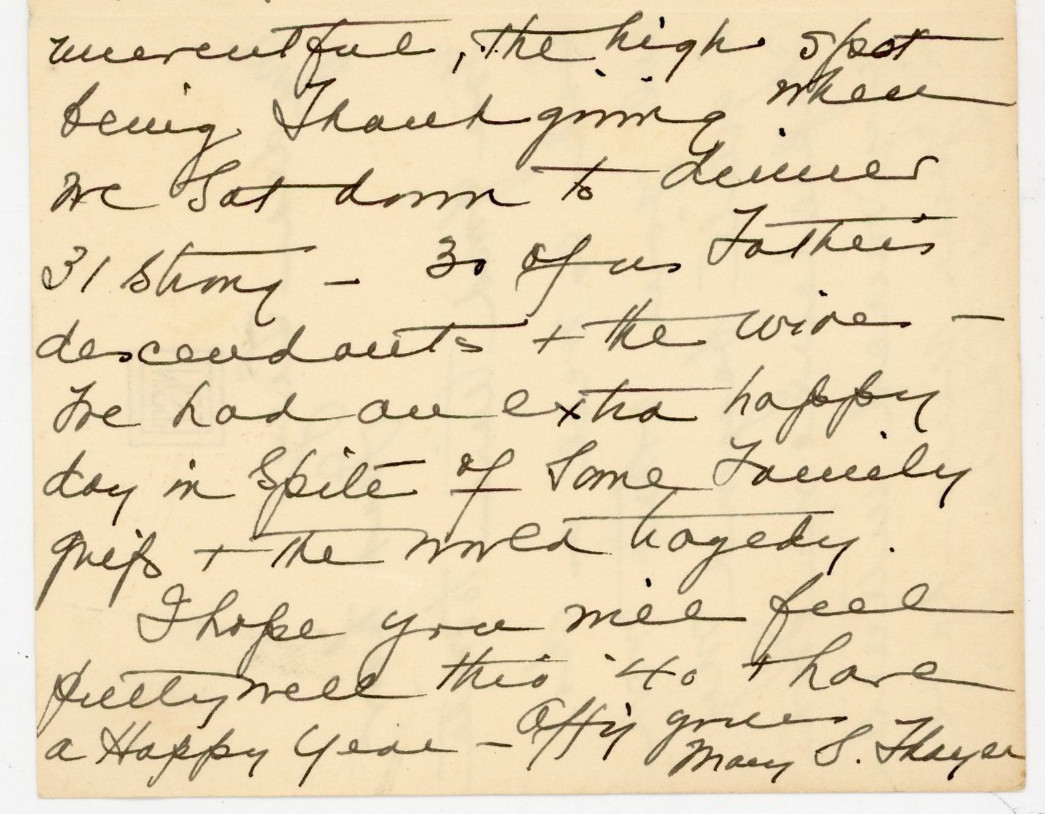 uneventful, the high spot
being Thanksgiving when
we sat down to dinner
31 strong - 30 of us Father's
descendants + the wives -
We had an extra happy
day in spite of some family
griefs + the world tragedy.
I hope you will feel
pretty well this '40 + have
a Happy Year - Affly yours
Mary S. Thayer